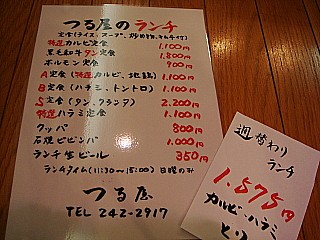 つる屋のランチ
定食(ライス、スープ、炒め物、キムチ付)
特選カルビ定食 1,100円
黒毛和牛タン定食 1,300円
ホルモン定食 900円
A定食(特選カルビ、地鶏) 1,100円
B定食(ハラミ、トントロ) 1,100円
S定食(タン、クラシタ) 2,200円
特選ハラミ定食 1,100円
クッパ 800円
石焼ビビンバ 1,000円
ランチ生ビール 350円
ランチタイム(11:30～15:00)日祝のみ
つる屋
TEL 242-2917
週替わり
ランチ
1.575円
カルビ・ハラミ
とり